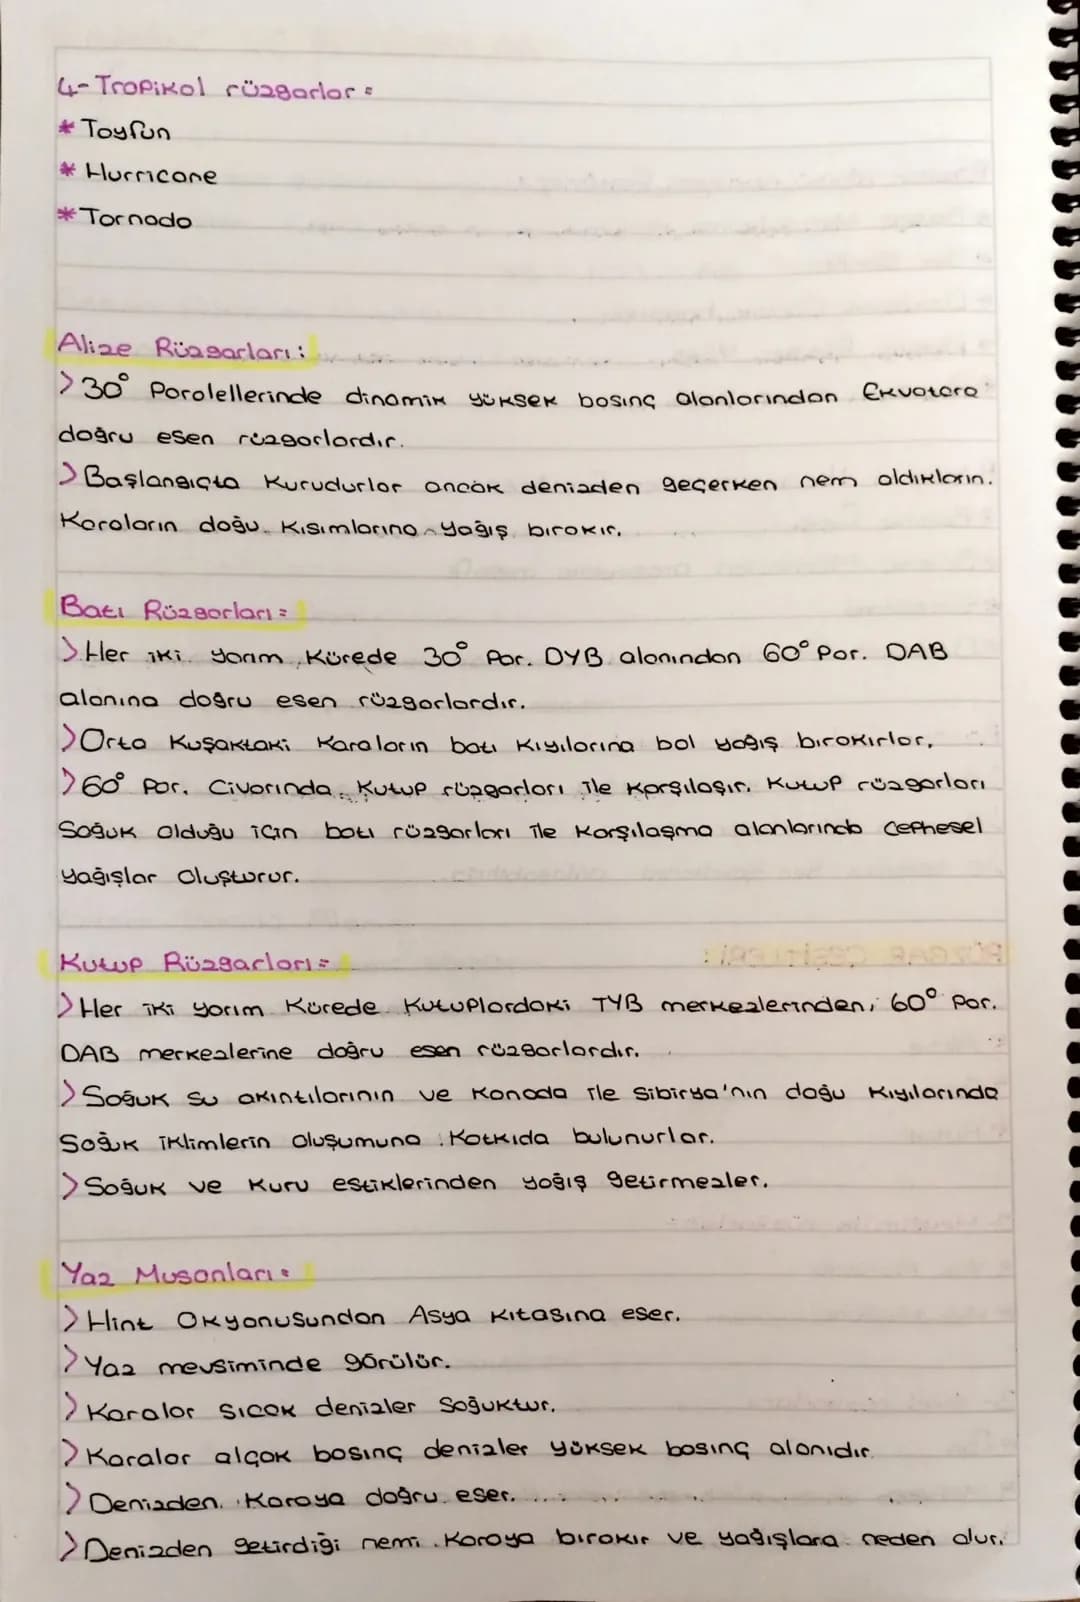 4- Tropikal rüzgarlar:
* Tayfun
* Hurricane
* Tornado
Alize Rüzgarları:
> 30° Paralellerinde dinamik yüksek basınç alanlarından Ekvatora
doğru esen rüzgarlardır.
> Başlangıçta Kurudurlar ancak denizden geçerken nem aldıkların.
Karaların doğu Kısımlarına yağış bırakır.
Batı Rüzgarları:
> Her iki yarım Kürede 30° Par. DYB alanından 60° Par. DAB
alanına doğru esen rüzgarlardır.
> Orta Kuşaktaki Karaların batı Kıyılarına bol yağış bırakırlar.
> 60° Par. Civarında Kutup rüzgarları ile Karşılaşır. Kutup rüzgarları
Soğuk Olduğu için batı rüzgarları ile Karşılaşma alanlarında Cephesel
yağışlar Oluşturur.
Kutup Rüzgarları:
> Her iki yarım Kürede Kutuplardaki TYB merkezlerinden, 60° Par.
DAB merkezlerine doğru esen rüzgarlardır.
> Soğuk su akıntılarının ve Kanada ile Sibirya'nın doğu Kıyılarında
Soğuk iklimlerin Oluşumuna Katkıda bulunurlar.
> Soğuk ve Kuru estiklerinden yağış getirmezler.
Yaz Musonları:
> Hint Okyanusundan Asya Kıtasına eser.
> Yaz mevsiminde görülür.
> Karalar Sıcak denizler Soğuktur.
> Karalar alçak basınç denizler yüksek basınç alanıdır.
> Denizden Karaya doğru eser.
> Denizden getirdiği nemi Karaya bırakır ve yağışlara neden olur.